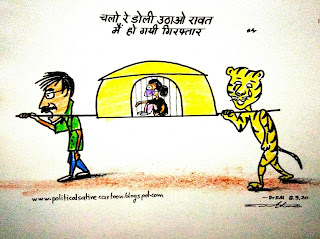 चलो रे डोली उठाओ रावत
मैं हो गयी गिरफ्तार
www.politicalsatirecartoon.blogspot.com
8.9.20